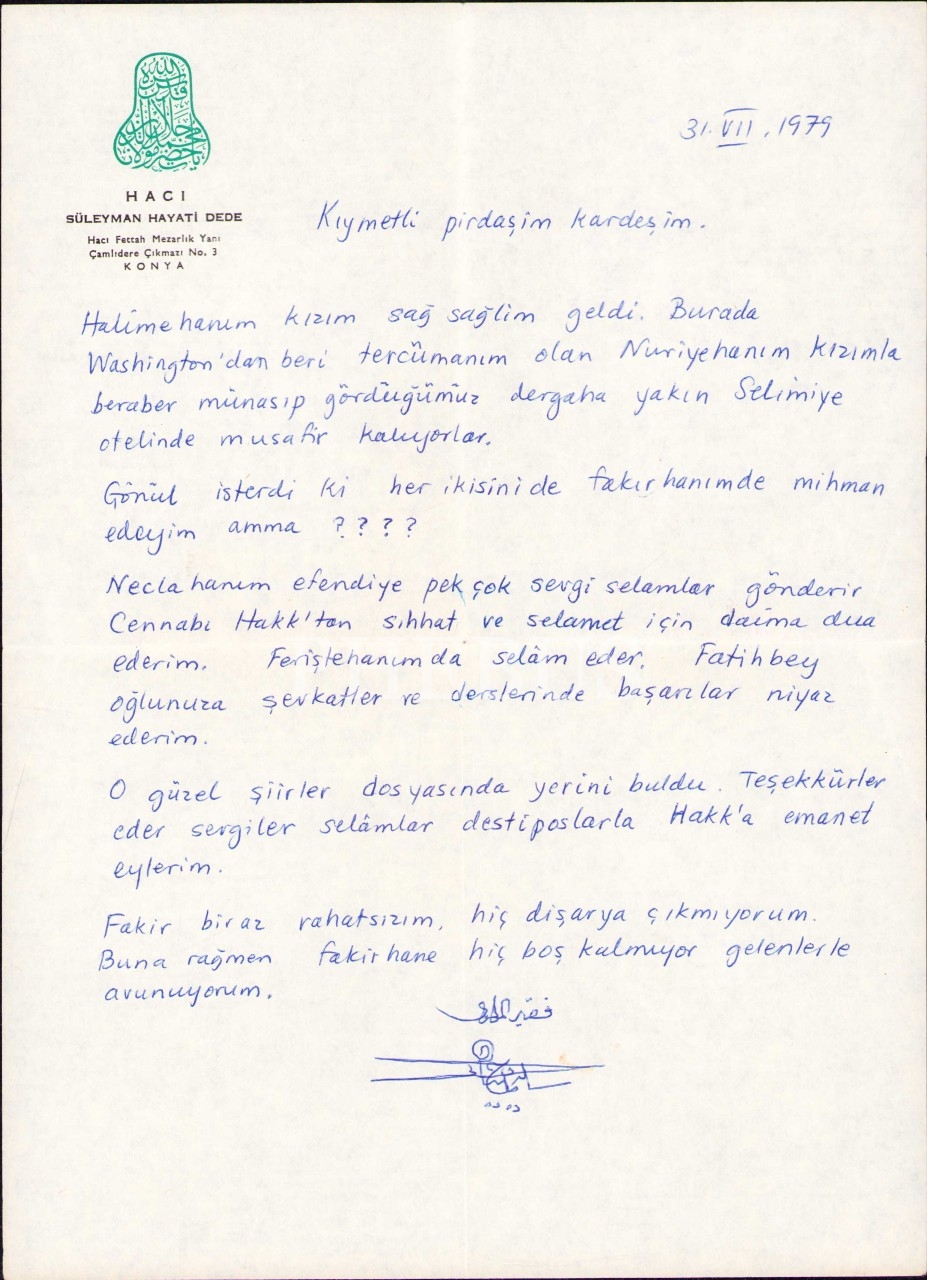 31.VII.1979
HACI
SÜLEYMAN HAYATİ DEDE
Hacı Fettah Mezarlık Yanı
Çamlıdere Çıkmazı No. 3
KONYA
Kıymetli pirdaşim kardeşim.
Halime hanım kızım sağ sağlim geldi. Burada
Washington'dan beri tercümanım olan Nuriyehanım kızımla
beraber münasıp gördüğümüz dergaha yakın Selimiye
otelinde musafir kalıyorlar.
Gönül isterdi ki her ikisini de fakırhanımde mihman
edeyim amma ????
Necla hanım efendiye pek çok sevgi selamlar gönderir
Cennabı Hakk'tan sıhhat ve selamet için daima dua
ederim. Feriştehanım da selâm eder. Fatihbey
oğlunuza şevkatler ve derslerinde başarılar niyaz
ederim.
O güzel şiirler dosyasında yerini buldu. Teşekkürler
eder sevgiler selâmlar destiposlarla Hakk'a emanet
eylerim.
Fakir biraz rahatsızım, hiç dişarya çıkmıyorum.
Buna rağmen fakirhane hiç boş kalmıyor gelenlerle
avunuyorum.
فقير
دده